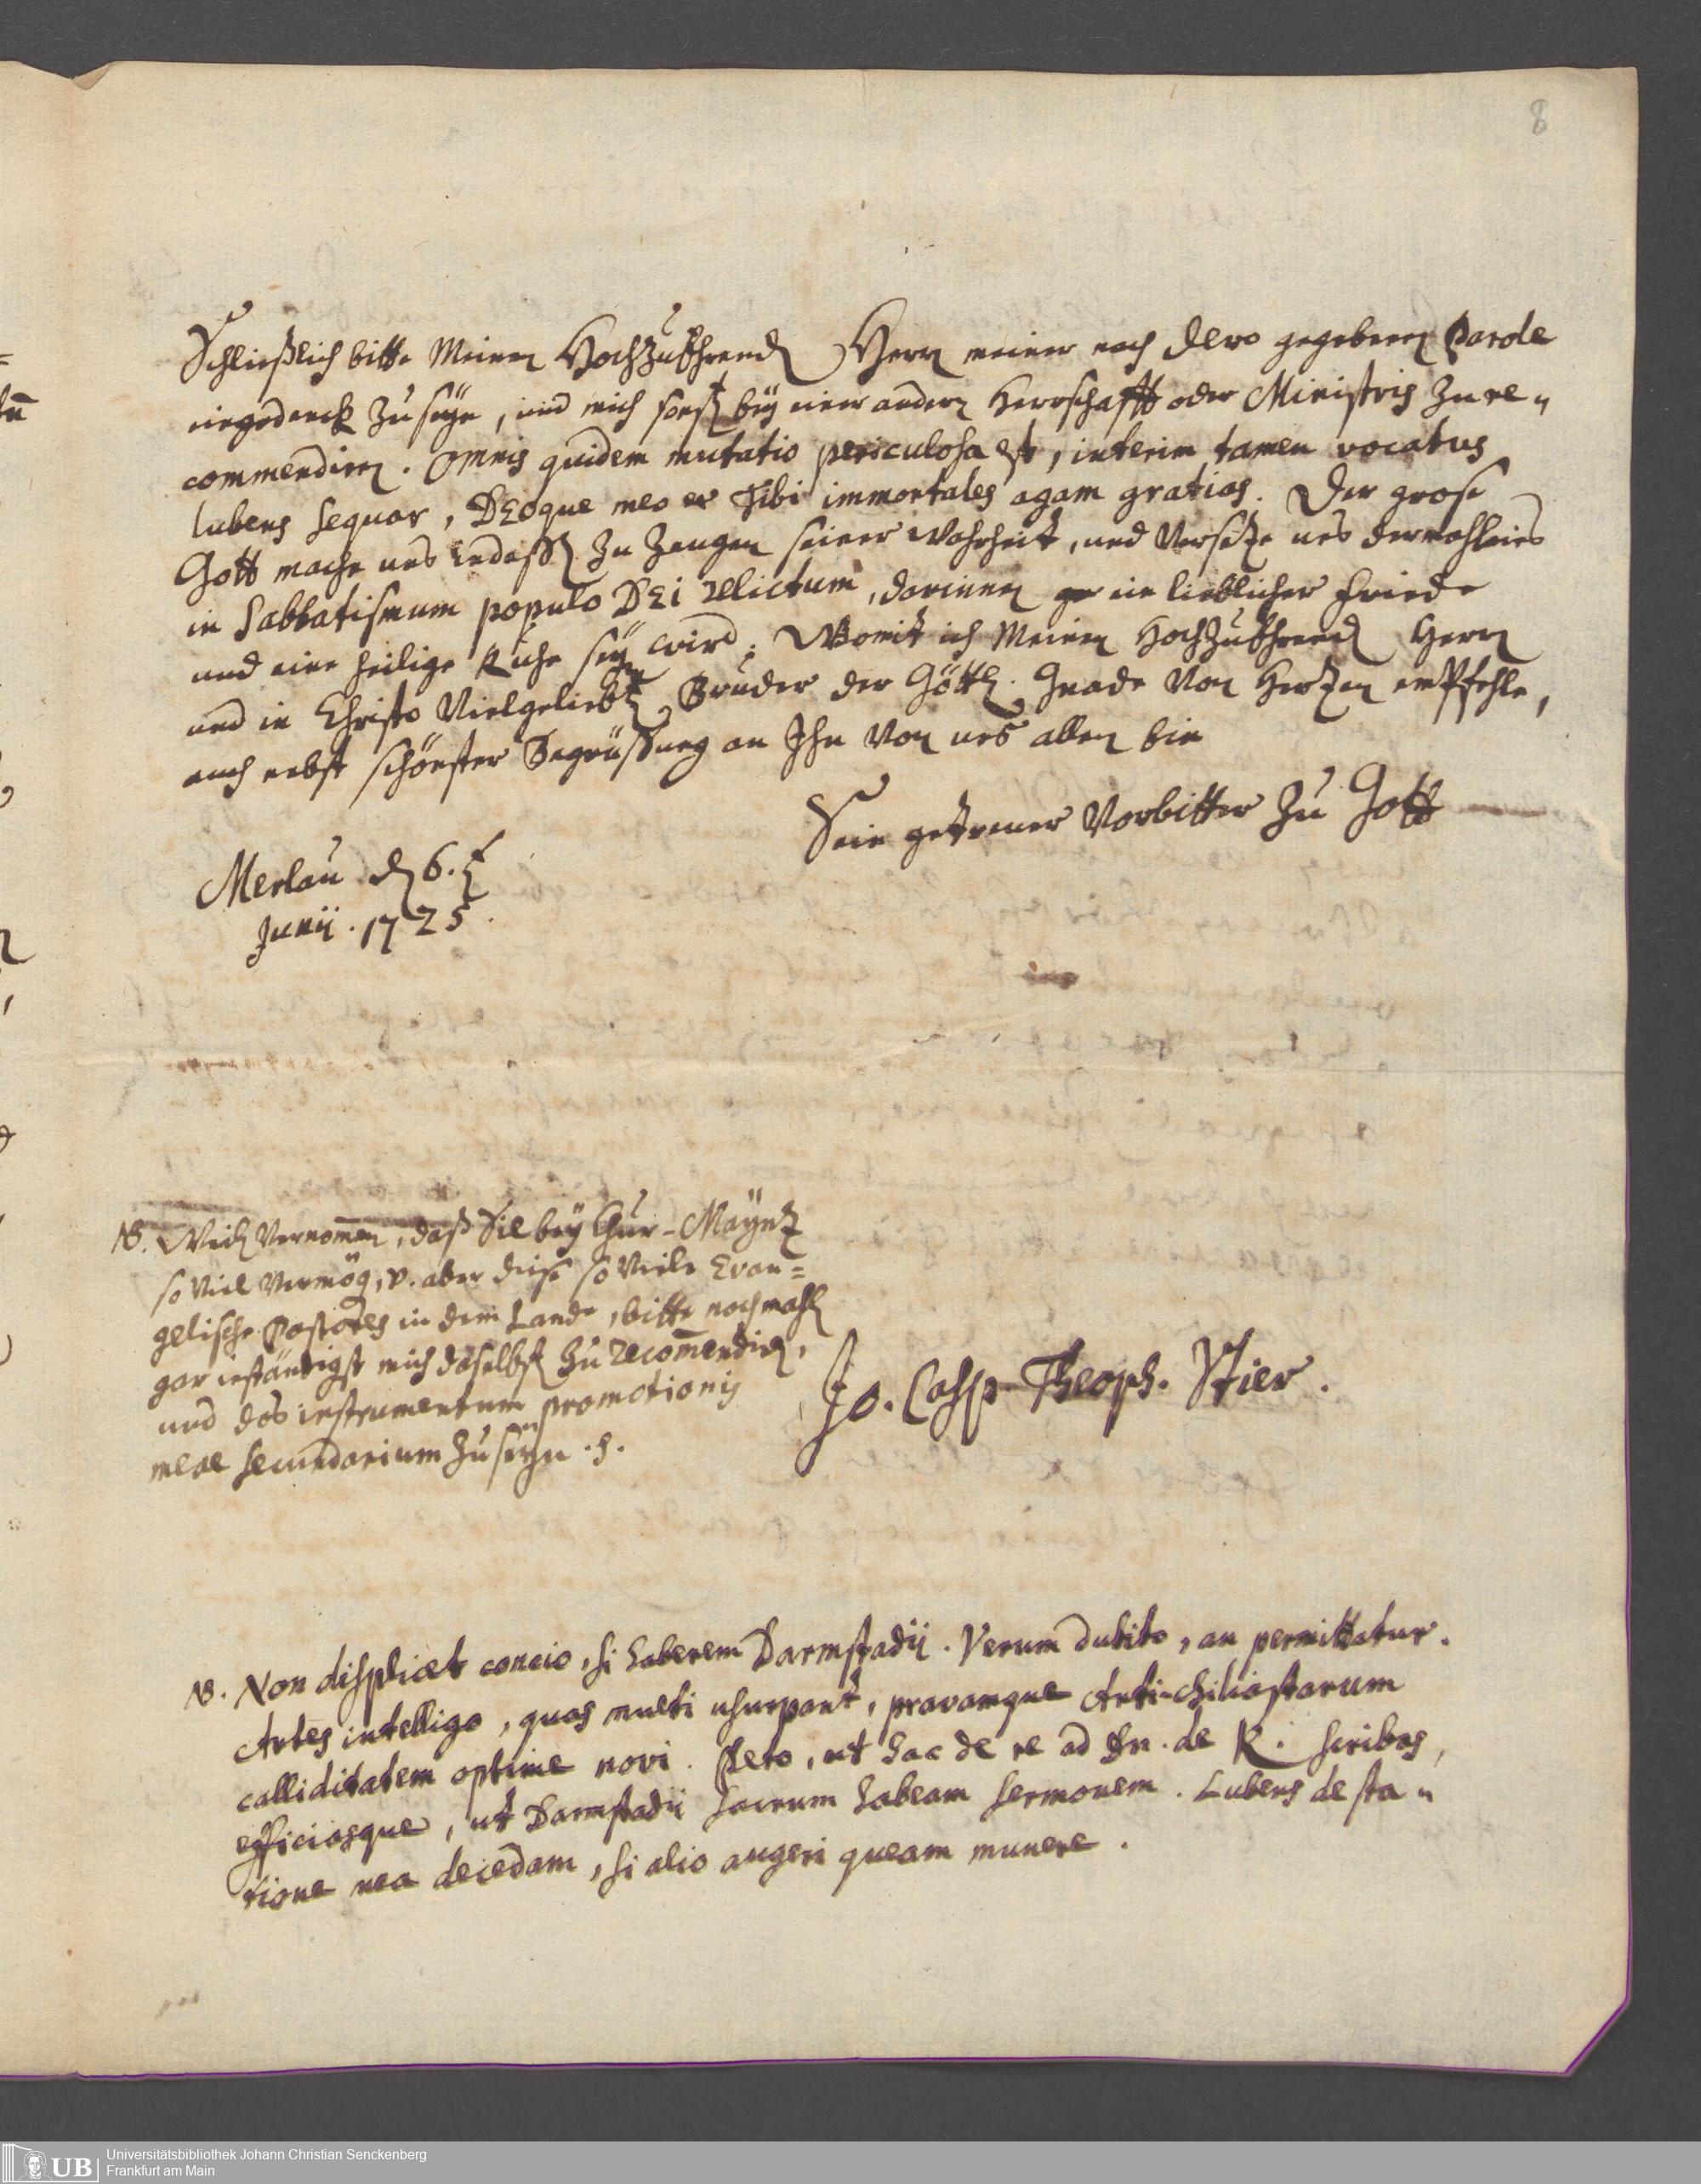 8
Schließlich bitte Meinen HochzuEhrend Herrn meiner nach Dero gegebenen Parole
eingedenck zu seyn, und mich sonst bey einer andern Herrschafft oder Ministris zu re„
commendiren. Omnis quidem mutatio periculosa est, interim tamen vocatus
lubens sequar, DEoque meo et Tibi immortales agam gratias. Der grose
Gott mache uns indeßen zu Zeugen seiner Wahrheit, und Versetze uns dermahleins
in Sabbatismum populo DEi relictum, darinnen ein lieblicher Friede
und eine heilige Ruhe seyn wird. Womit ich Meinen HochzuEhrend Herrn
und in Christo Vielgeliebten Bruder der Göttl. Gnade Von Hertzen empfehle,
auch nebst schönster Begrüßung an Ihn Von uns allen bin
Sein getreuer Vorbitter zu Gott
Merlau den 6.
Junii. 1725.
NB. Weil Vernommen, daß Sie bey Chur-Mayntz
so Viel Vermög, v. aber diese so Viele Evan=
gelische Pastores in dem Lande, bitte nochmahl
gar inständigst mich daselbst zu recommendiren,
und das instrumentum promotionis
meae secundarium zu seyn. s.
Jo. Casp. Theoph. Stier.
NB. Non displicet concio, si haberem Darmstadii. Verum dubito, an permittatur.
Artes intelligo, quas multi usurpant, pravamque Anti-chiliastarum
calliditatem optime novi. Peto, ut hac de re ad Dn. de K. scribas,
efficiasque, ut Darmstadii sacrum habeam sermonem. Lubens de sta„
tione mea decedam, si alio augeri queam munere.
UB
Universitätsbibliothek Johann Christian Senckenberg
Frankfurt am Main